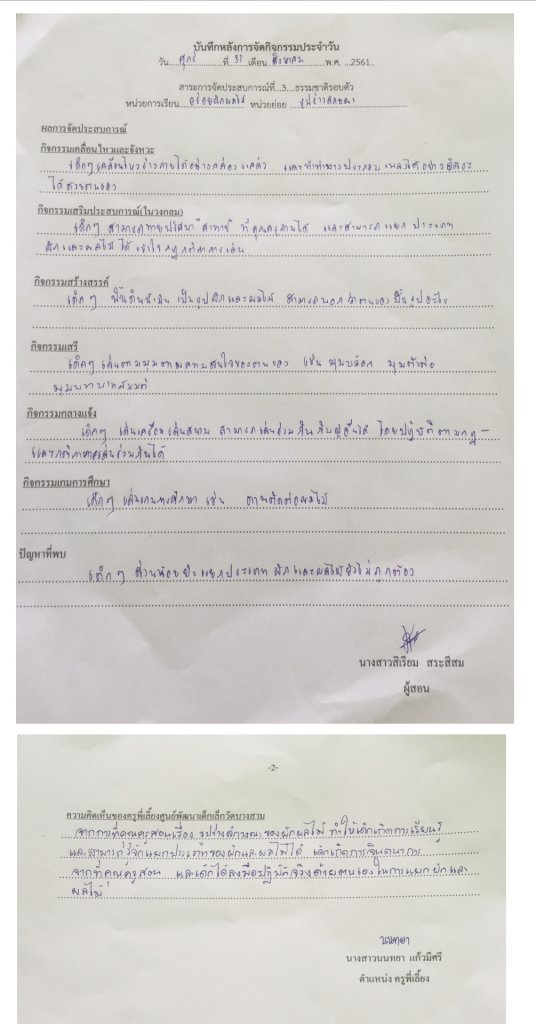 บันทึกหลังการจัดกิจกรรมประจำวัน
วัน ศุกร์ ที่ 31 เดือน สิงหาคม พ.ศ. ...2561..
สาระการจัดประสบการณ์ที่...3....ธรรมชาติรอบตัว
หน่วยการเรียน อร่อยผักผลไม้ หน่วยย่อย รูปร่างลักษณะ
ผลการจัดประสบการณ์
กิจกรรมเคลื่อนไหวและจังหวะ
เด็กๆ เคลื่อนไหวร่างกายได้อย่างคล่องแคล่ว และทำท่าทางประกอบเพลงได้อย่างอิสระ
ได้ด้วยตนเอง
กิจกรรมเสริมประสบการณ์(ในวงกลม)
เด็กๆ สามารถทายปริศนา "คำทาย" ที่คุณครูถามได้ และสามารถแยกประเภท
ผักและผลไม้ได้ เข้าใจกฎกติกาการเล่น
กิจกรรมสร้างสรรค์
เด็กๆ ปั้นดินน้ำมันเป็นรูปผักและผลไม้ สามารถบอกว่าตนเองปั้นรูปอะไร
กิจกรรมเสรี
เด็กๆ เล่นตามมุมตามความสนใจของตนเอง เช่น มุมบล็อก มุมตัวต่อ
มุมบทบาทสมมติ
กิจกรรมกลางแจ้ง
เด็กๆ เล่นเครื่องเล่นสนาม สามารถเล่นร่วมกันกับผู้อื่นได้ โดยปฏิบัติตามกฎ-
และกติกาการเล่นร่วมกันได้
กิจกรรมเกมการศึกษา
เด็กๆ เล่นเกมการศึกษา เช่น ภาพตัดต่อผลไม้
ปัญหาที่พบ
เด็กๆ ส่วนน้อยยังแยกประเภทผักและผลไม้ยังไม่ถูกต้อง
นางสาวสิเรียม สระสีสม
ผู้สอน
-2-
ความคิดเห็นของครูพี่เลี้ยงศูนย์พัฒนาเด็กเล็กวัดบางสาม
จากการที่คุณครูสอนเรื่อง รูปร่างลักษณะของผักผลไม้ ทำให้เด็กเกิดการเรียนรู้
และสามารถรู้จักแยกประเภทของผักและผลไม้ได้ เด็กเกิดการจินตนาการ
จากที่คุณครูสอน และเด็กได้ลงมือปฏิบัติจริงด้วยตนเองในการแยกผักและ
ผลไม้
นนทยา
นางสาวนนทยา แก้วมีศรี
ตำแหน่ง ครูพี่เลี้ยง